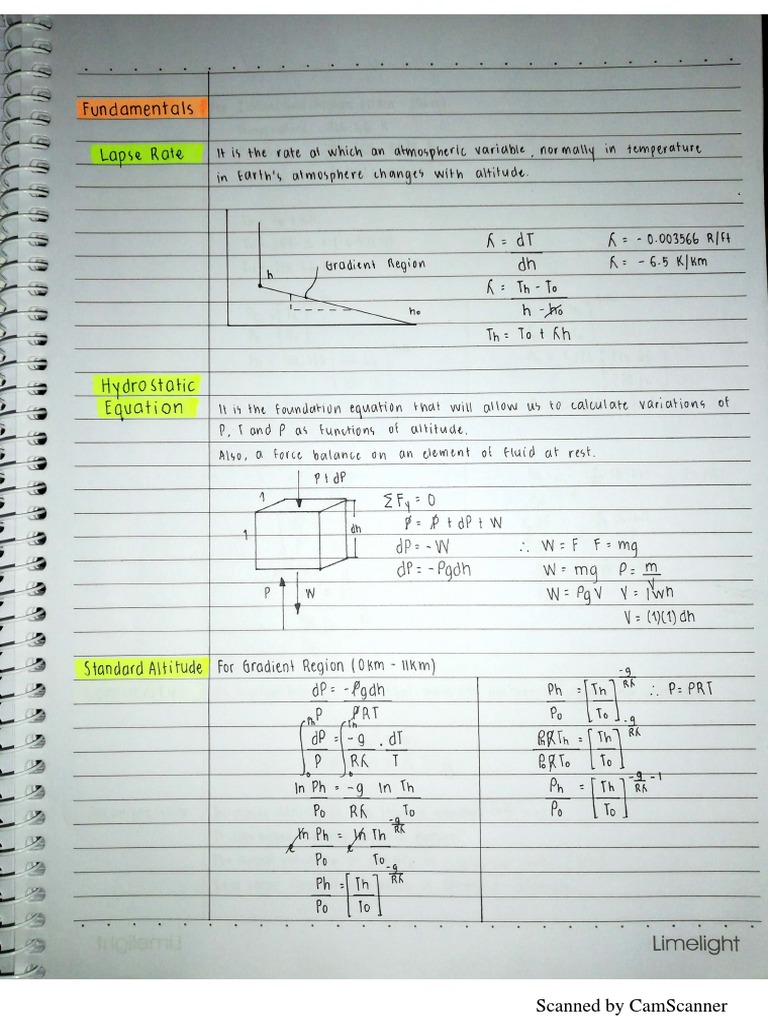 Fundamentals
Lapse Rate
It is the rate at which an atmospheric variable, normally in temperature
in Earth's atmosphere changes with altitude.
h
Gradient Region
h₀
ʎ = dT/dh
ʎ = - 0.003566 R/ft
ʎ = - 6.5 K/km
ʎ = (Th - T₀)/(h - h₀)
Th = T₀ + ʎh
Hydrostatic
Equation
It is the foundation equation that will allow us to calculate variations of
P, T and ρ as functions of altitude.
Also, a force balance on an element of fluid at rest.
P + dP
1
1
dh
P
W
ΣFy = 0
P = P + dP + W
dP = - W
dP = - ρgdh
∴ W = F F = mg
W = mg ρ = m/V
W = ρgV V = lwh
V = (1)(1) dh
Standard Altitude
For Gradient Region (0km - 11km)
dP/P = -ρgdh/ρRT
∫ dP/P = ∫ -g/Rʎ · dT/T
ln Ph/P₀ = -g/Rʎ ln Th/T₀
e ln Ph/P₀ = e ln Th/T₀ ^(-g/Rʎ)
Ph/P₀ = [Th/T₀]^(-g/Rʎ)
Ph/P₀ = [Th/T₀]^(-g/Rʎ) ∴ P = ρRT
ρhRTh/ρ₀RT₀ = [Th/T₀]^(-g/Rʎ)
ρh/ρ₀ = [Th/T₀]^(-g/Rʎ - 1)
Limelight
Scanned by CamScanner